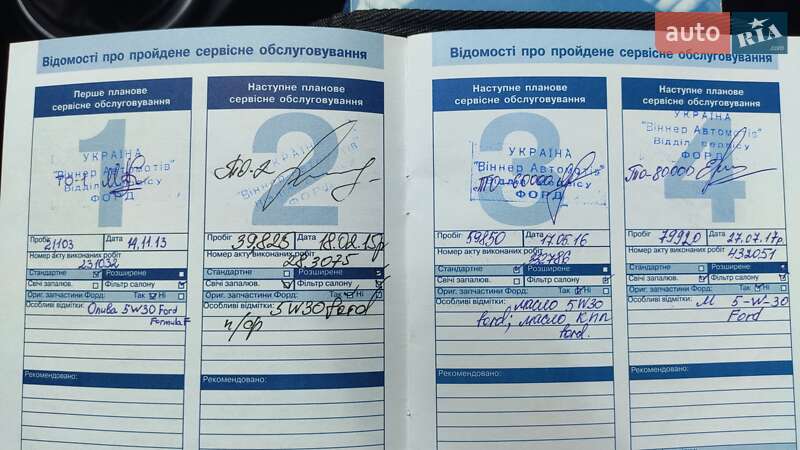 auto RIA
.com
Відомості про пройдене сервісне обслуговування
Перше планове
сервісне обслуговування
1
УКРАЇНА
"Віннер Автомотів"
Відділ сервісу
ФОРД
ТО-1
Пробіг 21103 Дата 14.11.13
Номер акту виконаних робіт
231032
Стандартне Розширене
Свічі запалюв. Фільтр салону
Ориг. запчастини Форд: Так Ні
Особливі відмітки: Олива 5W30 Ford
Formula F
Рекомендовано:
Наступне планове
сервісне обслуговування
2
УКРАЇНА
ФОРД
ТО-2
Пробіг 39825 Дата 18.02.15р
Номер акту виконаних робіт
283075
Стандартне Розширене
Свічі запалюв. Фільтр салону
Ориг. запчастини Форд: Так Ні
Особливі відмітки: 5W30 Ford
п/ф
Рекомендовано:
Відомості про пройдене сервісне обслуговування
Наступне планове
сервісне обслуговування
3
УКРАЇНА
"Віннер Автомотів"
ТО-60000
ФОРД
Пробіг 59850 Дата 17.05.16
Номер акту виконаних робіт
Стандартне Розширене
Свічі запалюв. Фільтр салону
Ориг. запчастини Форд: Так Ні
Особливі відмітки: масло 5W30
ford; масло КПП
ford.
Рекомендовано:
Наступне планове
сервісне обслуговування
4
УКРАЇНА
"Віннер Автомотів"
Відділ сервісу
ФОРД
ТО-80000
Пробіг 79920 Дата 27.07.17р
Номер акту виконаних робіт
432051
Стандартне Розширене
Свічі запалюв. Фільтр салону
Ориг. запчастини Форд: Так Ні
Особливі відмітки: М 5-W-30
Ford
Рекомендовано: